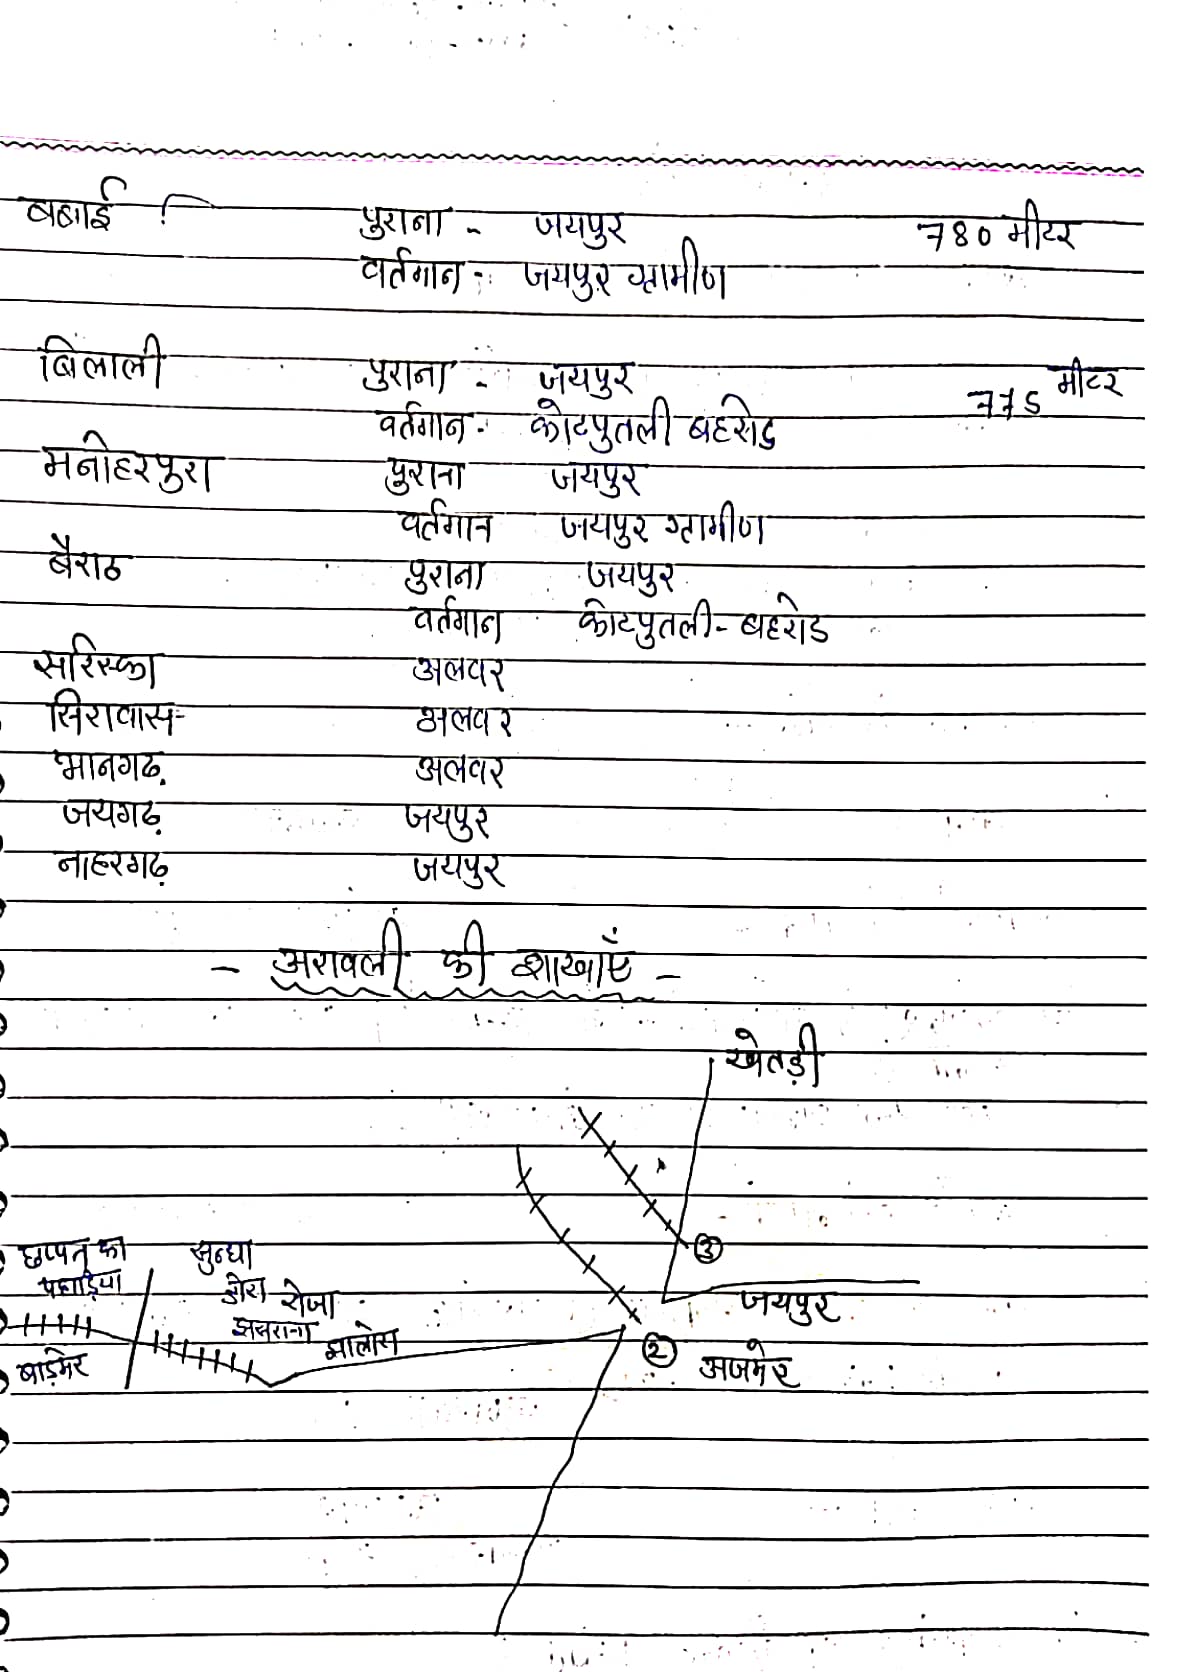 बबाई पुराना - जयपुर 780 मीटर
वर्तमान - जयपुर ग्रामीण
बिलाली पुराना - जयपुर 775 मीटर
वर्तमान - कोटपुतली बहरोड
मनोहरपुरा पुराना जयपुर
वर्तमान जयपुर ग्रामीण
बैराठ पुराना जयपुर
वर्तमान कोटपुतली - बहरोड
सरिस्का अलवर
सिरावास - अलवर
भानगढ़ अलवर
जयगढ़ जयपुर
नाहरगढ़ जयपुर
- अरावली की शाखाएँ -
खेतड़ी
③
छप्पन का सुन्धा
पहाड़िया डोरा रोजा
जयपुर
झसराना जालोर
बाड़मेर ② अजमेर